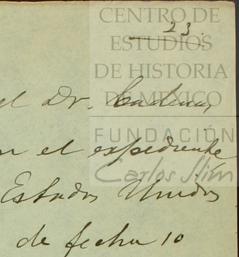 CENTRO DE
ESTUDIOS
DE HISTORIA
DE MÉXICO
FUNDACIÓN
Carlos Slim
23.
el Dr. Cadena,
en el expediente
Estados Unidos
de fecha 10